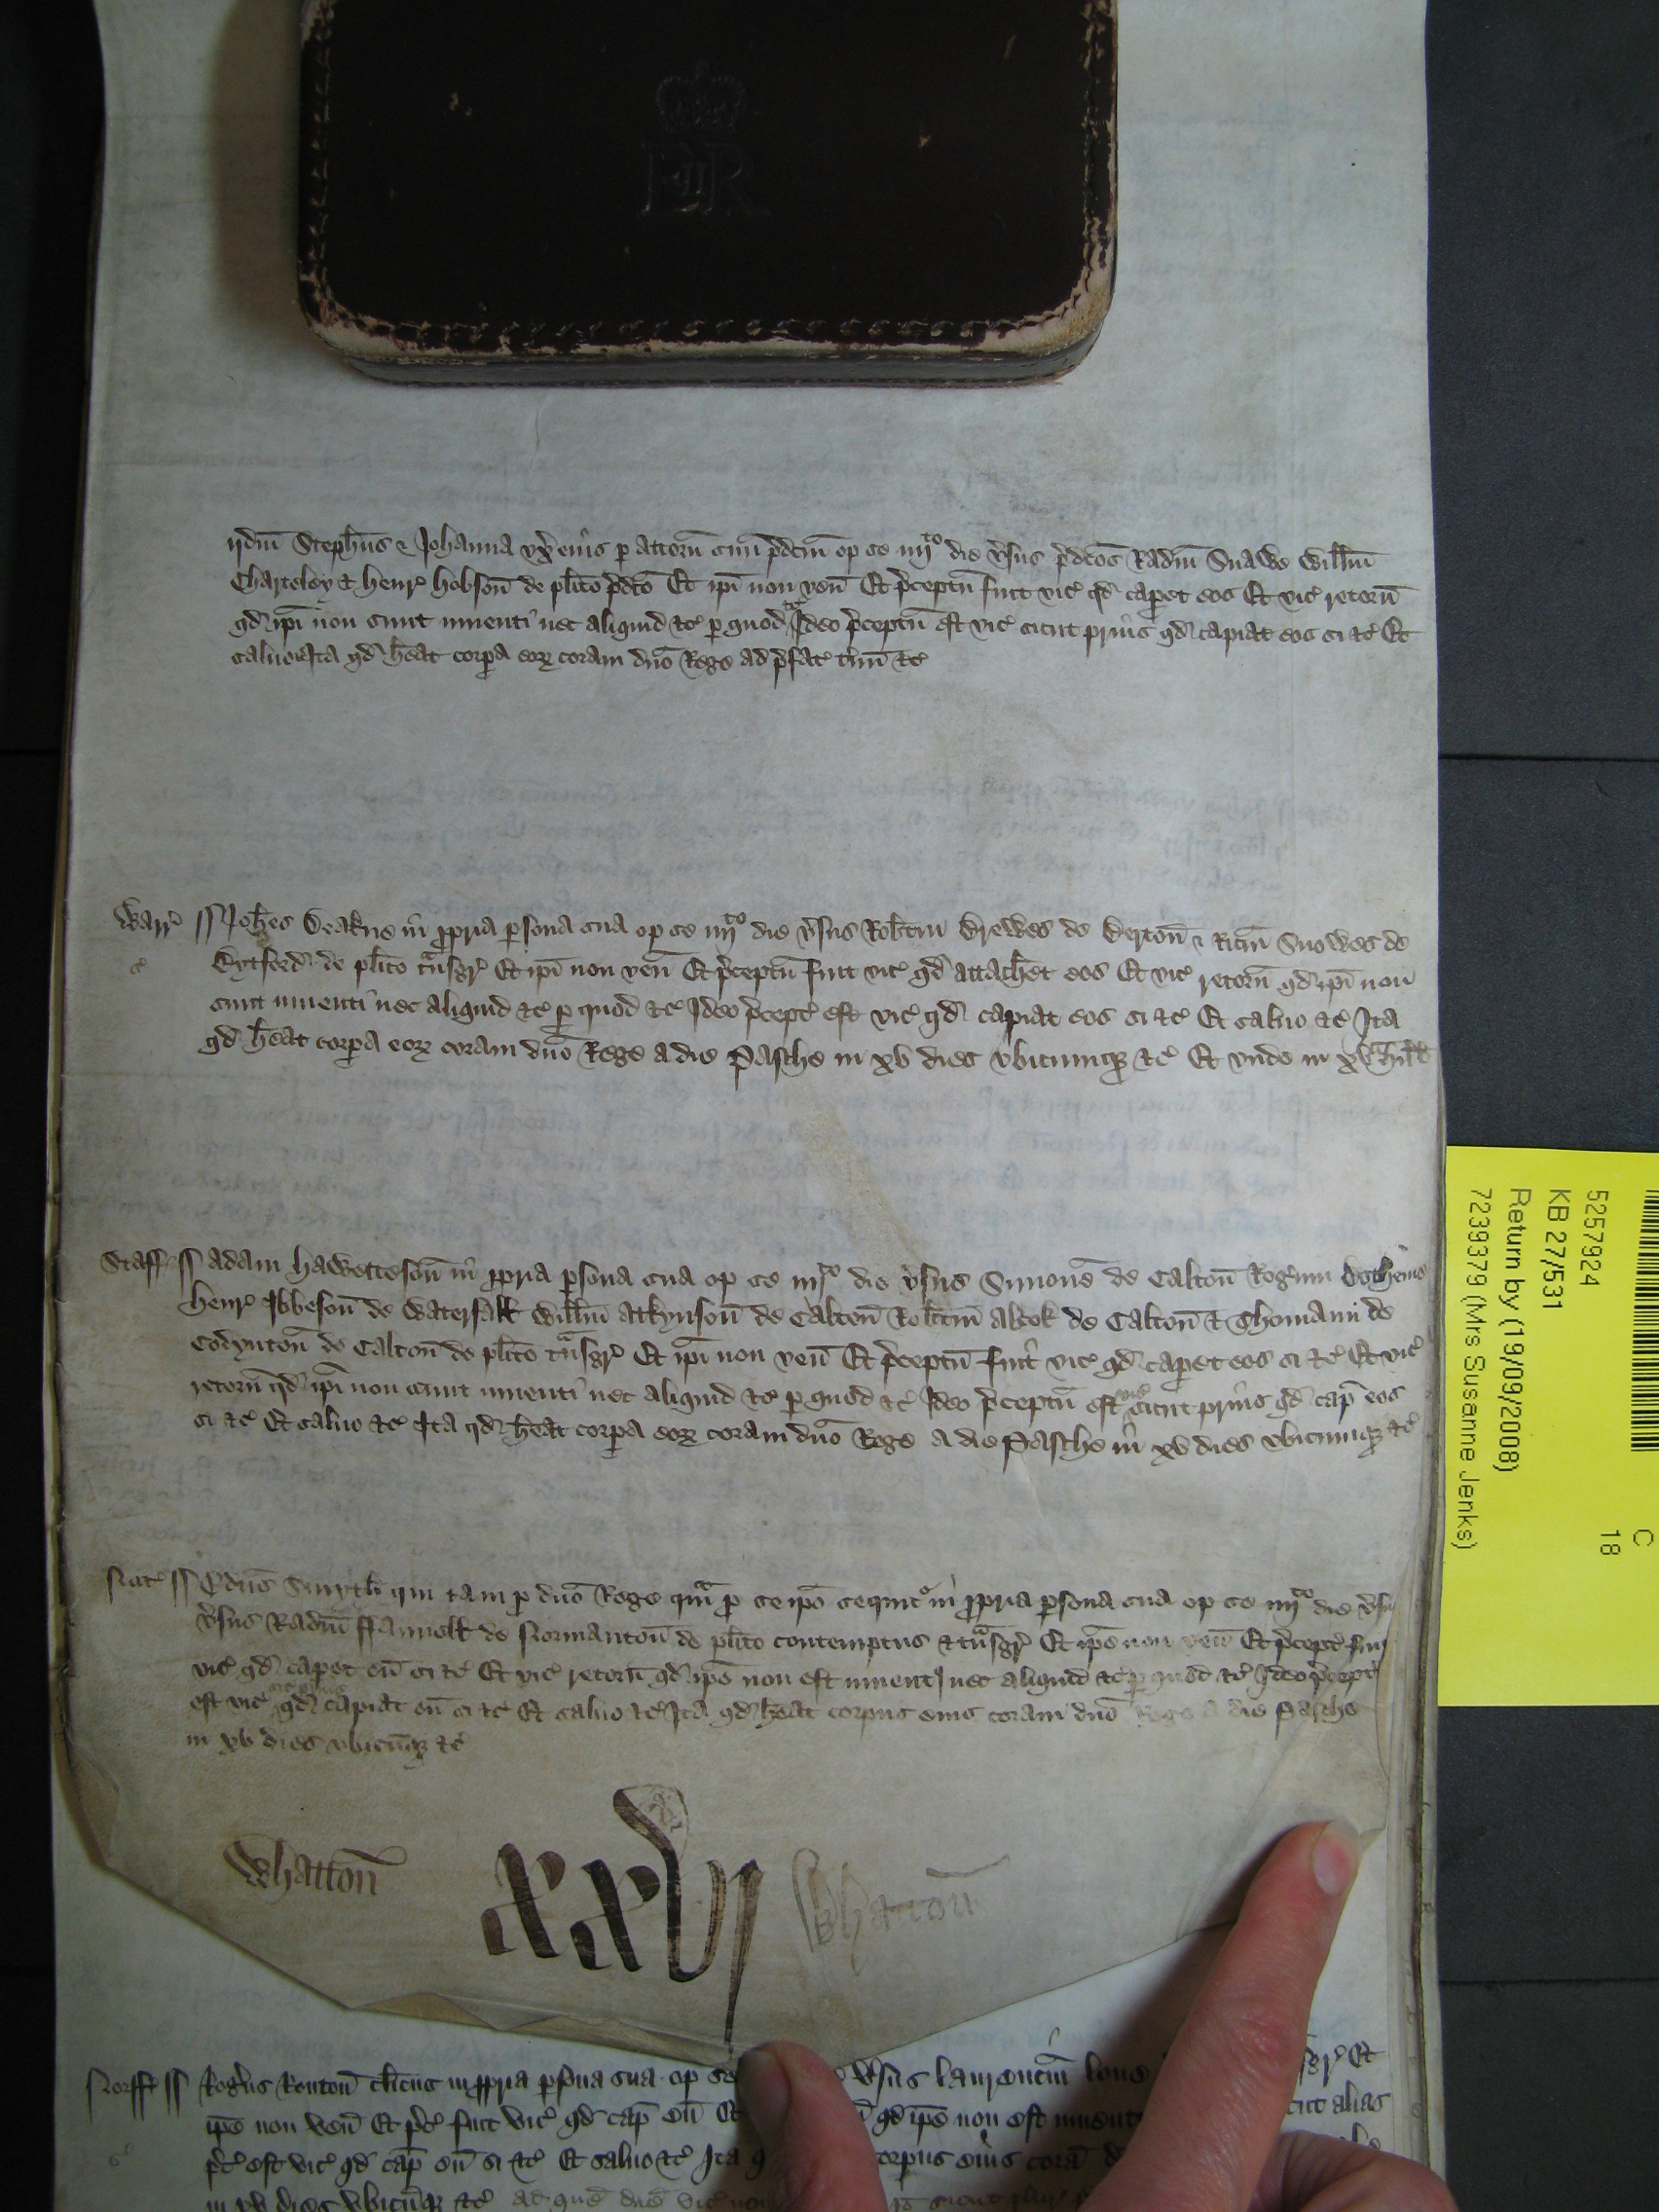 EIIR
iidm̄ Steph̄us & Joħanna vx̄ eius p attorn̄ suu p̄dcm̄ op se iiijto die v̄sus p̄dcos Radm̄ Snawe Willm̄
Charteley & Henr̄ Hobson̄ de plito p̄dco Et ip̄i non ven̄ Et p̄ceptu fuit vic̄ qd caperet eos Et vic̄ retorn̄
qd ip̄i non sunt inuenti nec aliquid &c̄ p quod &c̄ Ideo p̄ceptu est vic̄ sicut prius qd capiat eos si &c̄ Et
saluo Ita qd h̄eat corpa eoꝝ coram dn̄o Rege ad p̄fat̄ t̄m̄ &c̄
Warr̄ Joh̄es Deakne in ꝓpria psona sua op se iiijto die v̄sus Rob̄tm Drewes de Derton̄ & Ric̄m Snowes de
Bytford de plito tᵃnsgr̄ Et ip̄i non ven̄ Et p̄ceptu fuit vic̄ qd attach̄et eos Et vic̄ retorn̄ qd ip̄i non
sunt inuenti nec aliquid &c̄ p quod &c̄ Ideo p̄cept̄ est vic̄ qd capiat eos si &c̄ Et saluo &c̄ Ita
qd h̄eat corpa eoꝝ coram dn̄o Rege a die Pasche in xv dies vbicumqꝫ &c̄ Et vnde in xv
Staff̄ Adam Hawetteson̄ in ꝓpria psona sua op se iiijto die v̄sus Simone de Calton̄ Roḡum
Henr̄ Ibbeson̄ de Waterfall Willm̄ Atkynson̄ de Calton̄ Rob̄tm Alcok de Calton̄ & Thomam de
Codynton̄ de Calton̄ de plito tᵃnsgr̄ Et ip̄i non ven̄ Et p̄ceptu fuit vic̄ qd caperet eos si &c̄ Et vic̄
retorn̄ qd ip̄i non sunt inuenti nec aliquid &c̄ p quod &c̄ Ideo p̄ceptu est vic̄ sicut prius qd cap̄ eos
si &c̄ Et saluo &c̄ Ita qd h̄eat corpa eoꝝ coram dn̄o Rege a die Pasche in xv dies vbicumqꝫ &c̄
Not̄ Edus Smyth qui tam p dn̄o Rege qᵃm p se ipo sequit in ꝓpria psona sua op se iiijto die v̄su
v̄sus Radm̄ de Normanton̄ de plito contemptus & tᵃnsgr̄ Et ip̄e non ven̄ Et p̄cept̄ fuit
vic̄ qd caperet eu si &c̄ Et vic̄ retorn̄ qd ip̄e non est inuent nec aliquid &c̄ p quod &c̄ Ideo p̄cept
est vic̄ sicut prius qd capiat eu si &c̄ Et saluo &c̄ Ita qd h̄eat corpus eius coram dn̄o Rege a die Pasche
in xv dies vbicumqꝫ &c̄
Whatton̄ xxvj Whatton̄
Norff̄ Roḡus Renton̄ cl̄icus in ꝓpria psona sua op se v̄sus Laurencim Et
ip̄e non ven̄ Et p̄c̄ fuit vic̄ qd cap̄ eu Et qd ip̄e non est inuent sicut alias
p̄c̄ est vic̄ qd cap̄ eu si &c̄ Et saluo &c̄ Ita corpus eius cora
in xv dies vbicumqꝫ &c̄
C
18
5257924
KB 27/531
Return by (19/09/2008)
7239379 (Mrs Susanne Jenks)